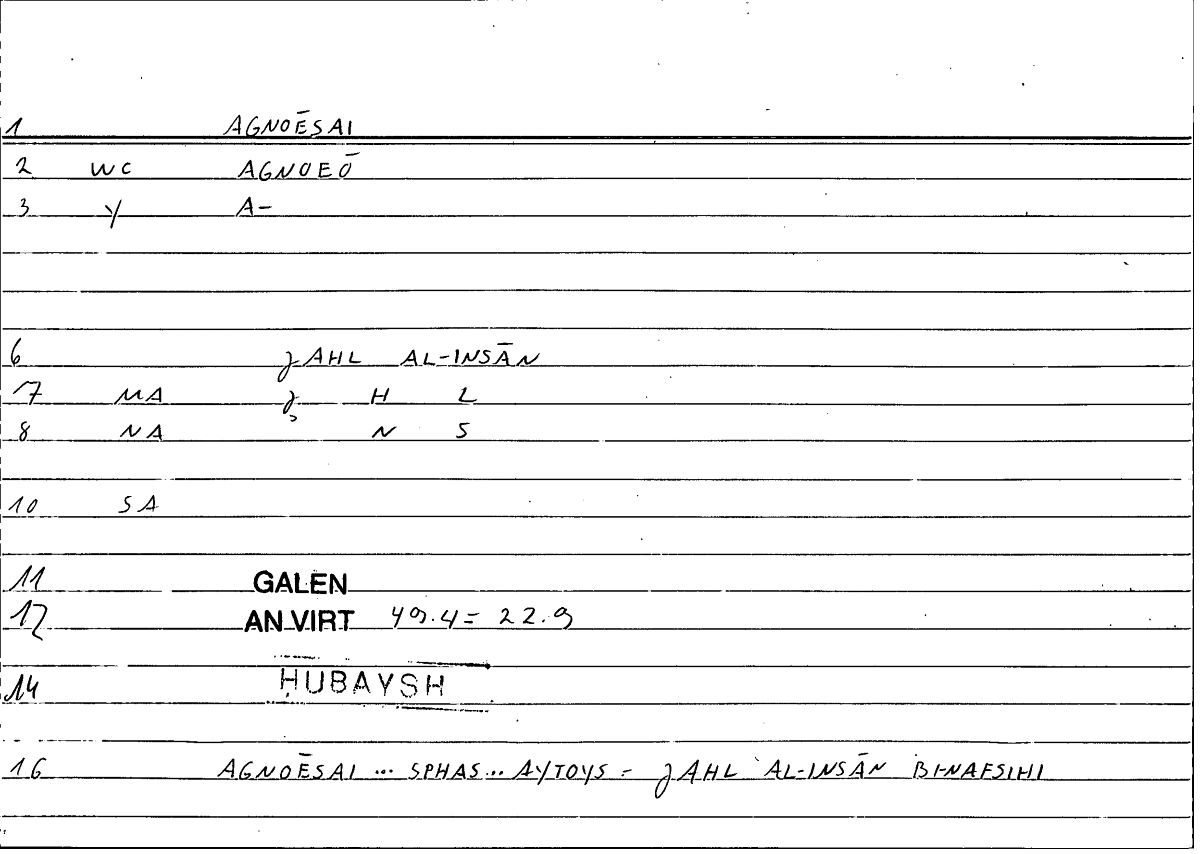 1 AGNOĒSAI
2 WC AGNOEŌ
3 Y A-
6 ǧAHL AL-INSĀN
17 MA ǧ H L
8 NA N S
10 SA
11 GALEN
12 AN VIRT 49.4 = 22.9
14 ḤUBAYSH
16 AGNOĒSAI ... SPHAS ... AYTOYS = ǧAHL AL-INSĀN BI-NAFSIHI